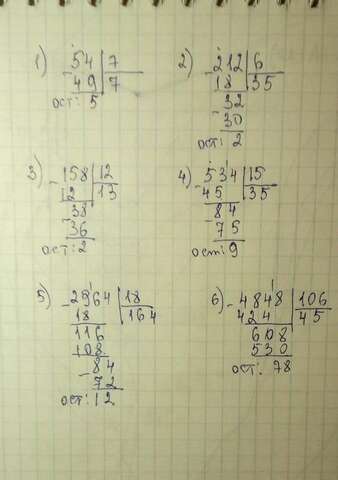 1) 54 | 7
- 49 | 7
ост: 5
2) - 212 | 6
18 | 35
32
- 30
ост: 2
3) - 158 | 12
12 | 13
38
- 36
ост: 2
4) - 534 | 15
45 | 35
84
- 75
ост: 9
5) - 2964 | 18
18 | 164
116
108
84
- 72
ост: 12
6) - 4848 | 106
424 | 45
608
530
ост: 78